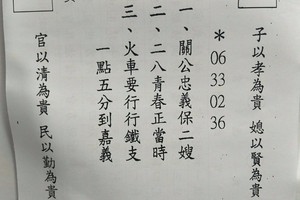 子以孝為貴 媳以賢為貴
*06 33 02 36
一、關公忠義保二嫂
二、二八青春正當時
三、火車要行行鐵支
一點五分到嘉義
官以清為貴 民以勤為貴